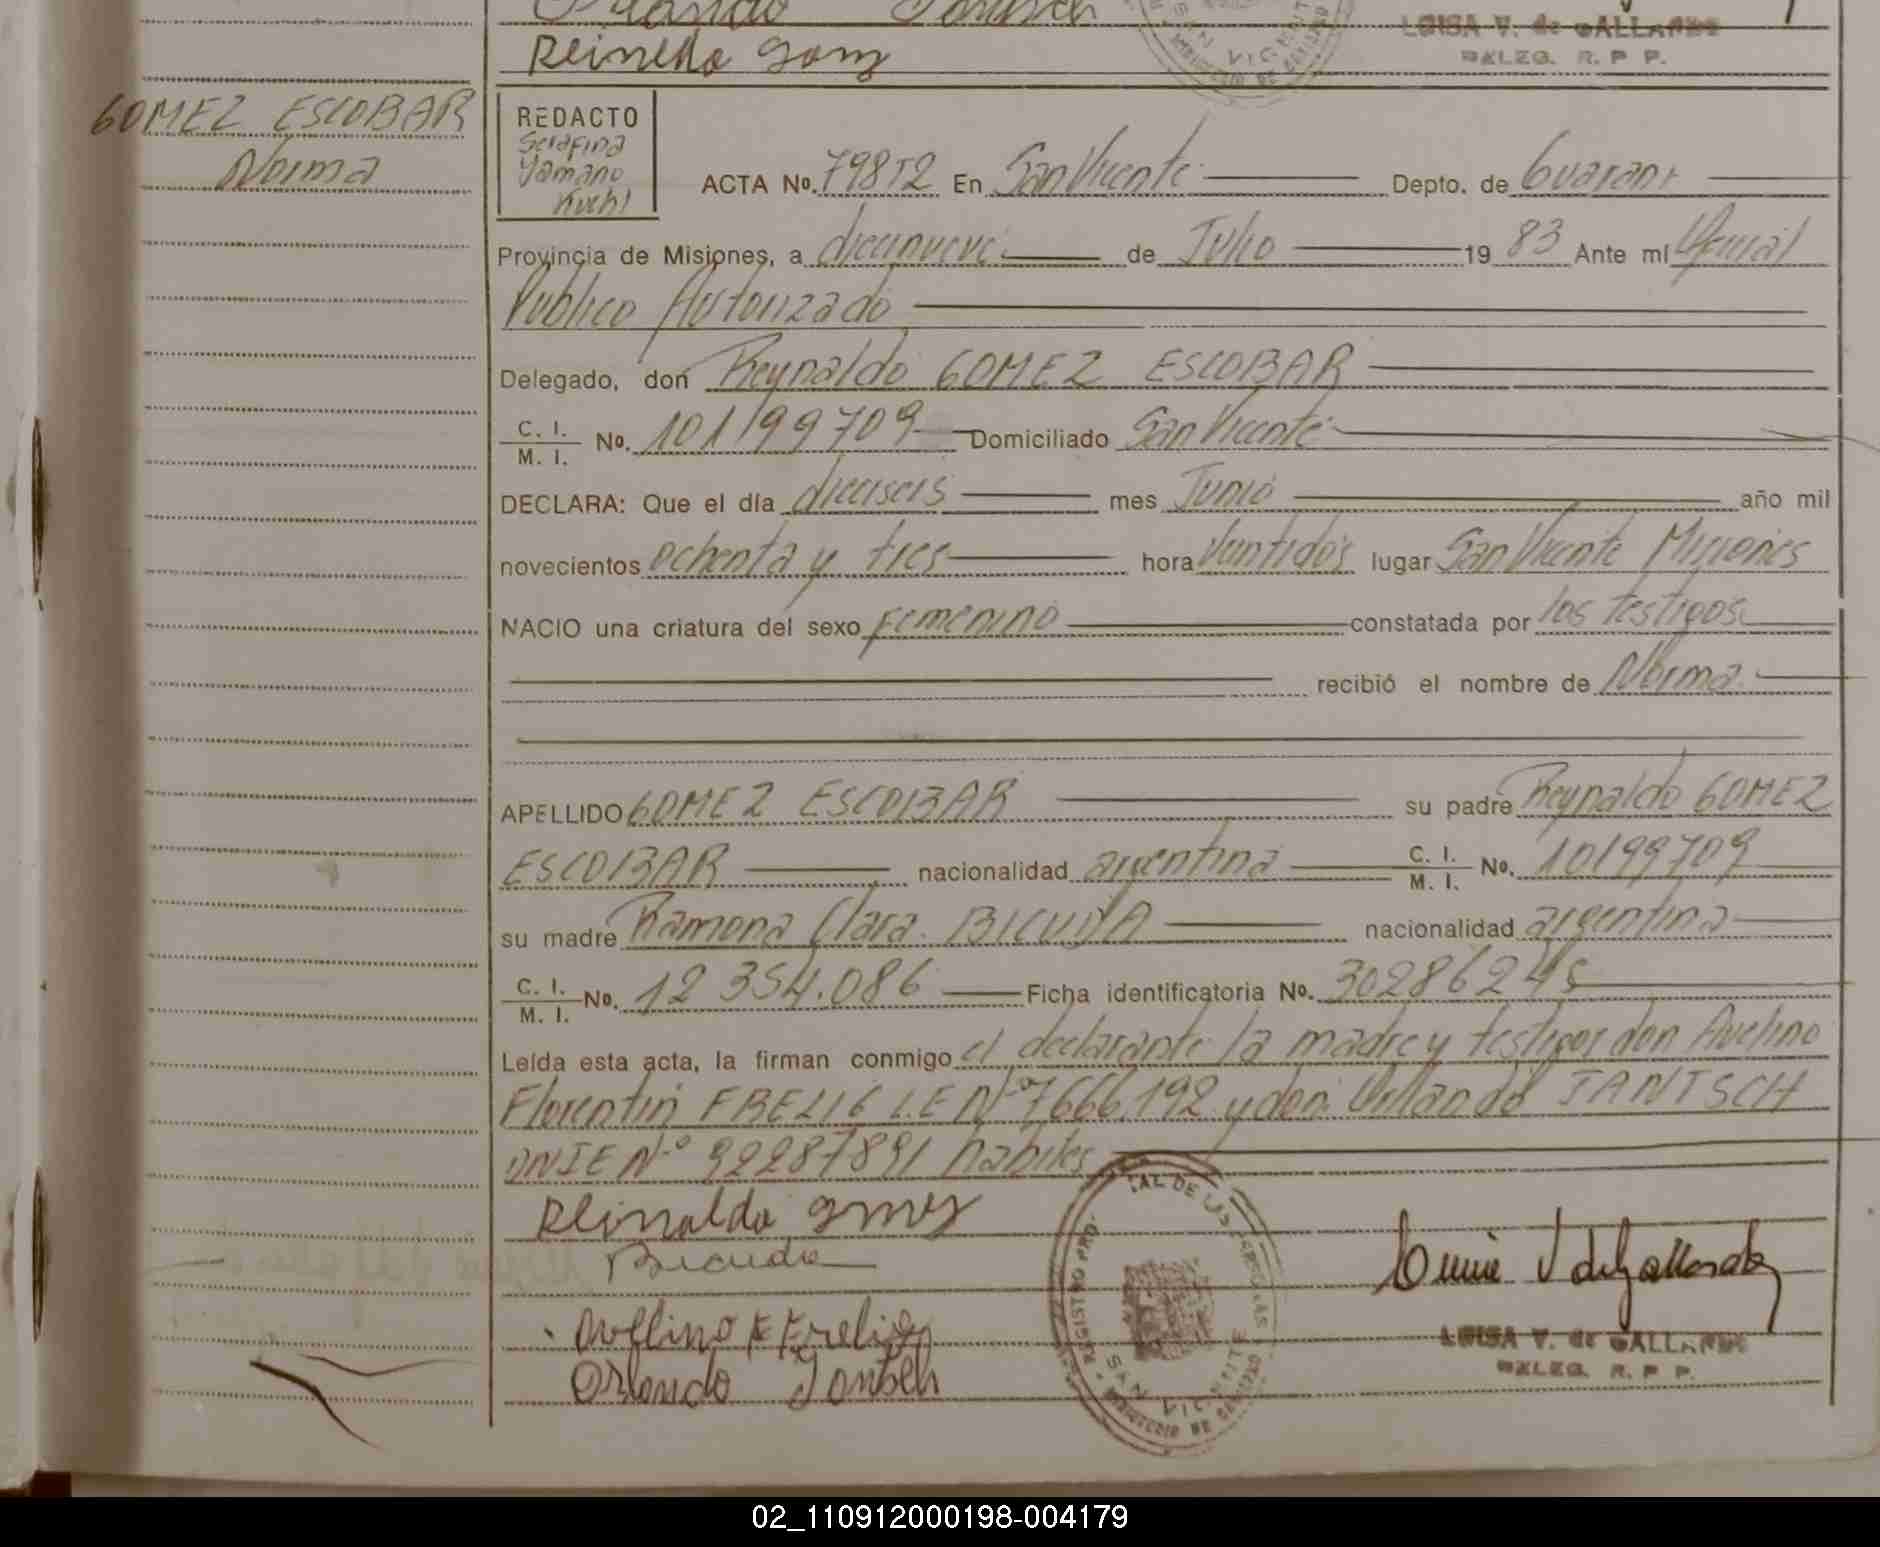 Orlando Jantsch
Reineldo Gomz
SAN VICENTE
MINISTERIO DE GOBIERNO
LUISA V. de GALLARDO
DELEG. R. P P.
GOMEZ ESCOBAR
Norma
REDACTO
Serafina
Yamano
Kuchl
ACTA No. 798T2 En San Vicente Depto. de Guaraní
Provincia de Misiones, a diecinueve de Julio 19 83 Ante mí Oficial
Publico Autorizado
Delegado, don Reynaldo GOMEZ ESCOBAR
C. I.
M. I. No. 10199709 Domiciliado San Vicente
DECLARA: Que el día dieciseis mes Junio año mil
novecientos ochenta y tres hora Veintidós lugar San Vicente Misiones
NACIO una criatura del sexo femenino constatada por los testigos
recibió el nombre de Norma
APELLIDO GOMEZ ESCOBAR su padre Reynaldo GOMEZ
ESCOBAR nacionalidad argentina C. I.
M. I. No. 10199709
su madre Ramona Clara BICUDA nacionalidad argentina
C. I.
M. I. No. 12 354.086 Ficha identificatoria No. 30286245
Leída esta acta, la firman conmigo el declarante la madre y testigos don Avelino
Florentin FRELIG L.E Nº 7666.192 y don Orlando JANTSCH
DNIE Nº 92287891 habiles
Reinaldo gomes
Bicuda
Avelino F Frelig
Orlando Jantsch
REGISTRO PRO
IAL DE LAS PERSONAS
SAN VICENTE
MINISTERIO DE GOBIERNO
LUISA V. de GALLARDO
DELEG. R. P P.
02_110912000198-004179